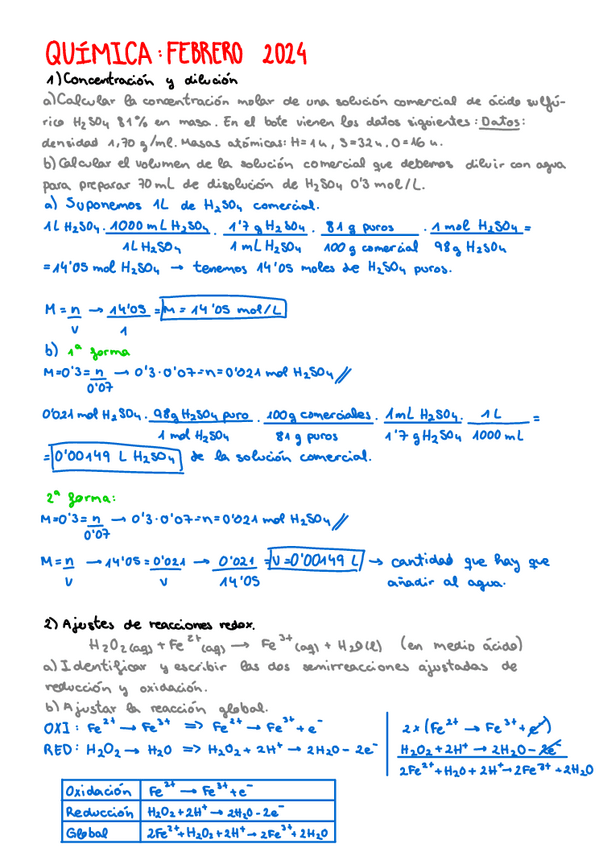 QUÍMICA: FEBRERO 2024
1) Concentración y dilución
a) Calcular la concentración molar de una solución comercial de ácido sulfú-
rico H₂SO₄ 81% en masa. En el bote vienen los datos siguientes: Datos:
densidad 1,70 g/ml. Masas atómicas: H=1u, S=32u. O=16 u.
b) Calcular el volumen de la solución comercial que debemos diluir con agua
para preparar 70 mL de disolución de H₂SO₄ 0'3 mol/L.
a) Suponemos 1L de H₂SO₄ comercial.
1L H₂SO₄ · 1000 mL H₂SO₄ / 1L H₂SO₄ · 1'7 g H₂SO₄ / 1 mL H₂SO₄ · 81 g puros / 100 g comercial · 1 mol H₂SO₄ / 98g H₂SO₄ =
= 14'05 mol H₂SO₄ → tenemos 14'05 moles de H₂SO₄ puros.
M = n/V → 14'05/1 = M = 14'05 mol/L
b) 1ª forma
M=0'3= n/0'07 → 0'3·0'07=n=0'021 mol H₂SO₄ //
0'021 mol H₂SO₄ · 98g H₂SO₄ puro / 1 mol H₂SO₄ · 100g comerciales / 81 g puros · 1mL H₂SO₄ / 1'7 g H₂SO₄ · 1L / 1000 mL =
= 0'00149 L H₂SO₄ de la solución comercial.
2ª forma:
M=0'3= n/0'07 → 0'3·0'07=n=0'021 mol H₂SO₄ //
M= n/V → 14'05 = 0'021/V → 0'021/14'05 = V=0'00149 L → cantidad que hay que
añadir al agua.
2) Ajustes de reacciones redox.
H₂O₂(aq) + Fe²⁺(aq) → Fe³⁺(aq) + H₂O(l) (en medio ácido)
a) Identificar y escribir las dos semirreacciones ajustadas de
reducción y oxidación.
b) Ajustar la reacción global.
OXI: Fe²⁺ → Fe³⁺ => Fe²⁺ → Fe³⁺ + e⁻
RED: H₂O₂ → H₂O => H₂O₂ + 2H⁺ → 2H₂O - 2e⁻
2x (Fe²⁺ → Fe³⁺ + e⁻)
H₂O₂ + 2H⁺ → 2H₂O - 2e⁻
2Fe²⁺ + H₂O + 2H⁺ → 2Fe³⁺ + 2H₂O
Oxidación Fe²⁺ → Fe³⁺ + e⁻
Reducción H₂O₂ + 2H⁺ → 2H₂O - 2e⁻
Global 2Fe²⁺ + H₂O₂ + 2H⁺ → 2Fe³⁺ + 2H₂O